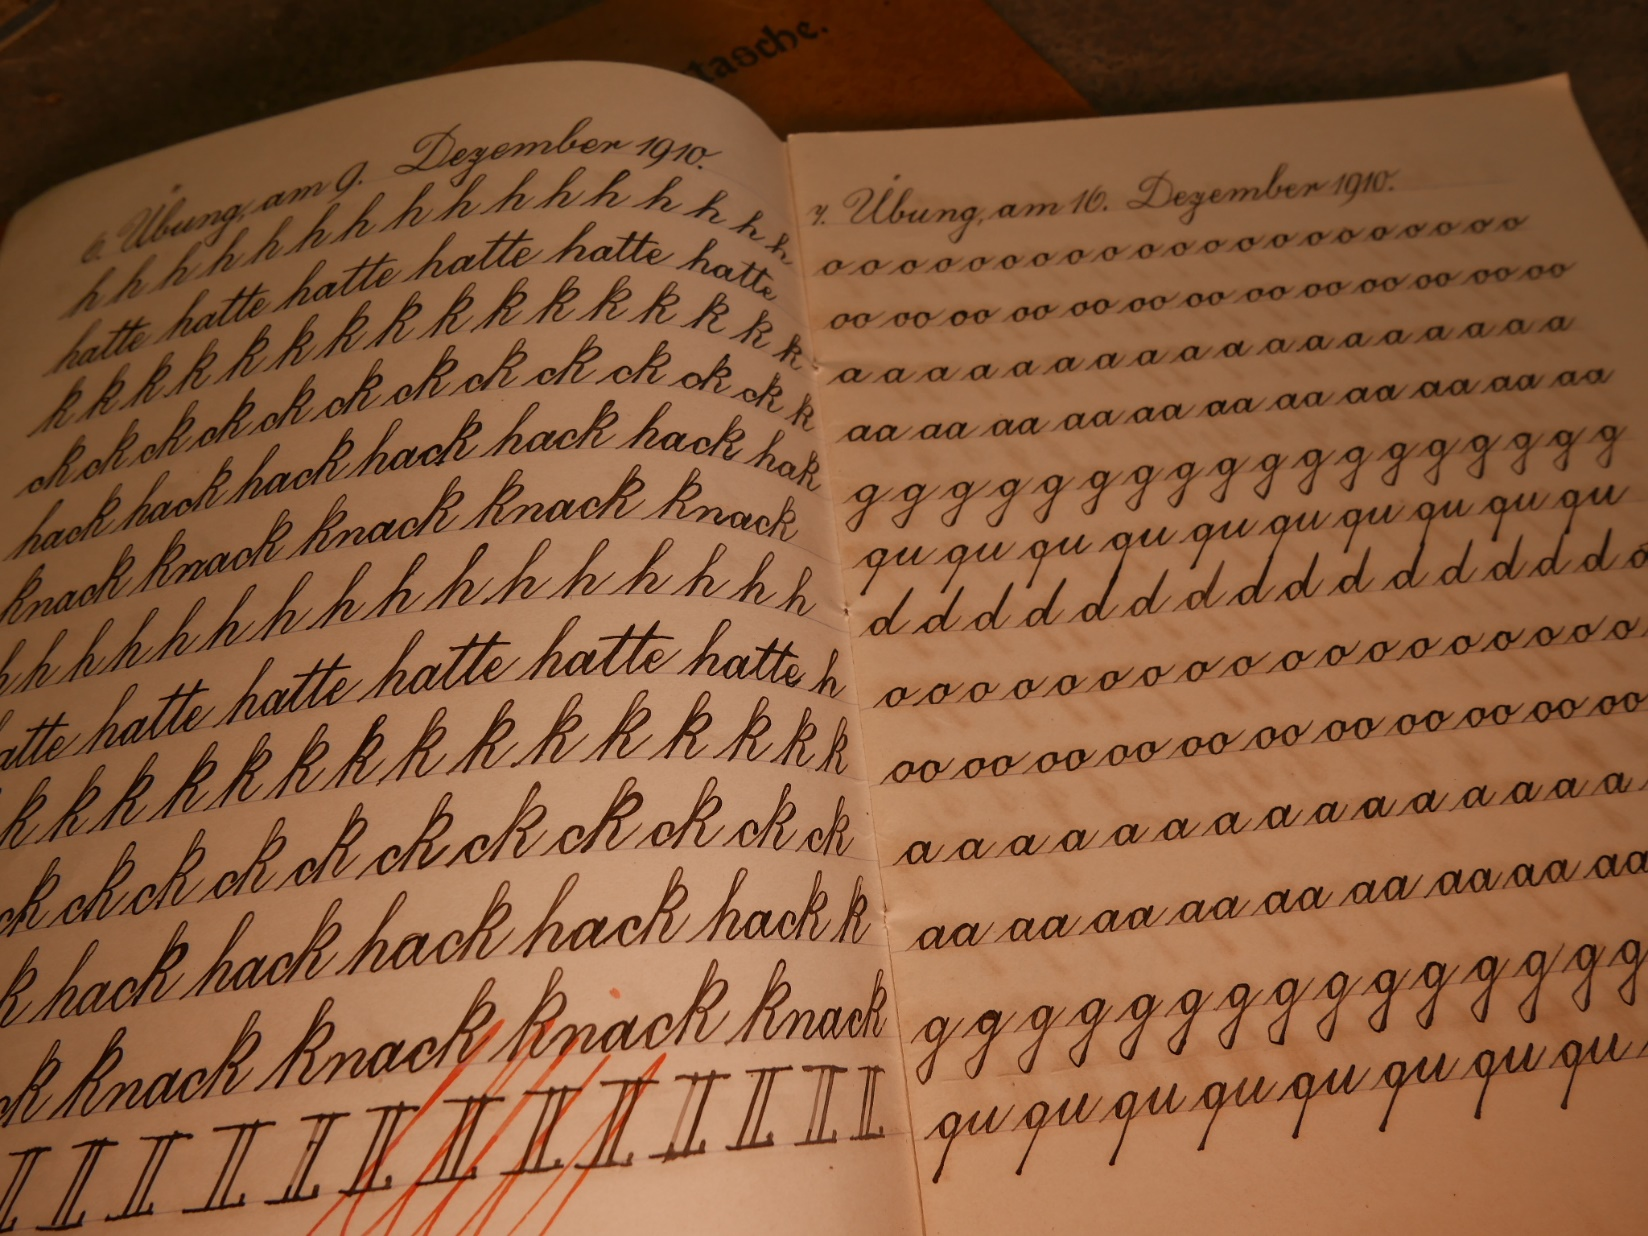 tasche.
6. Übung, am 9. Dezember 1910.
h h h h h h h h h h h h h h h h
hatte hatte hatte hatte hatte hatte
k k k k k k k k k k k k k k k k
ck ck ck ck ck ck ck ck ck ck ck ck k
hack hack hack hack hack hack hak
knack knack knack knack knack
h h h h h h h h h h h h h h h h
atte hatte hatte hatte hatte hatte h
k k k k k k k k k k k k k k k
ck ck ck ck ck ck ck ck ck ck ck
k hack hack hack hack hack k
ck knack knack knack knack
II II II II II II II II II II II II II
7. Übung, am 16. Dezember 1910.
o o o o o o o o o o o o o o o o o o o
oo oo oo oo oo oo oo oo oo oo oo oo oo
a a a a a a a a a a a a a a a a a a
aa aa aa aa aa aa aa aa aa aa aa
g g g g g g g g g g g g g g g g g g
qu qu qu qu qu qu qu qu qu qu
d d d d d d d d d d d d d d d d
o o o o o o o o o o o o o o o o o o
oo oo oo oo oo oo oo oo oo oo oo
a a a a a a a a a a a a a a a
aa aa aa aa aa aa aa aa aa
g g g g g g g g g g g g g g g
qu qu qu qu qu qu qu qu